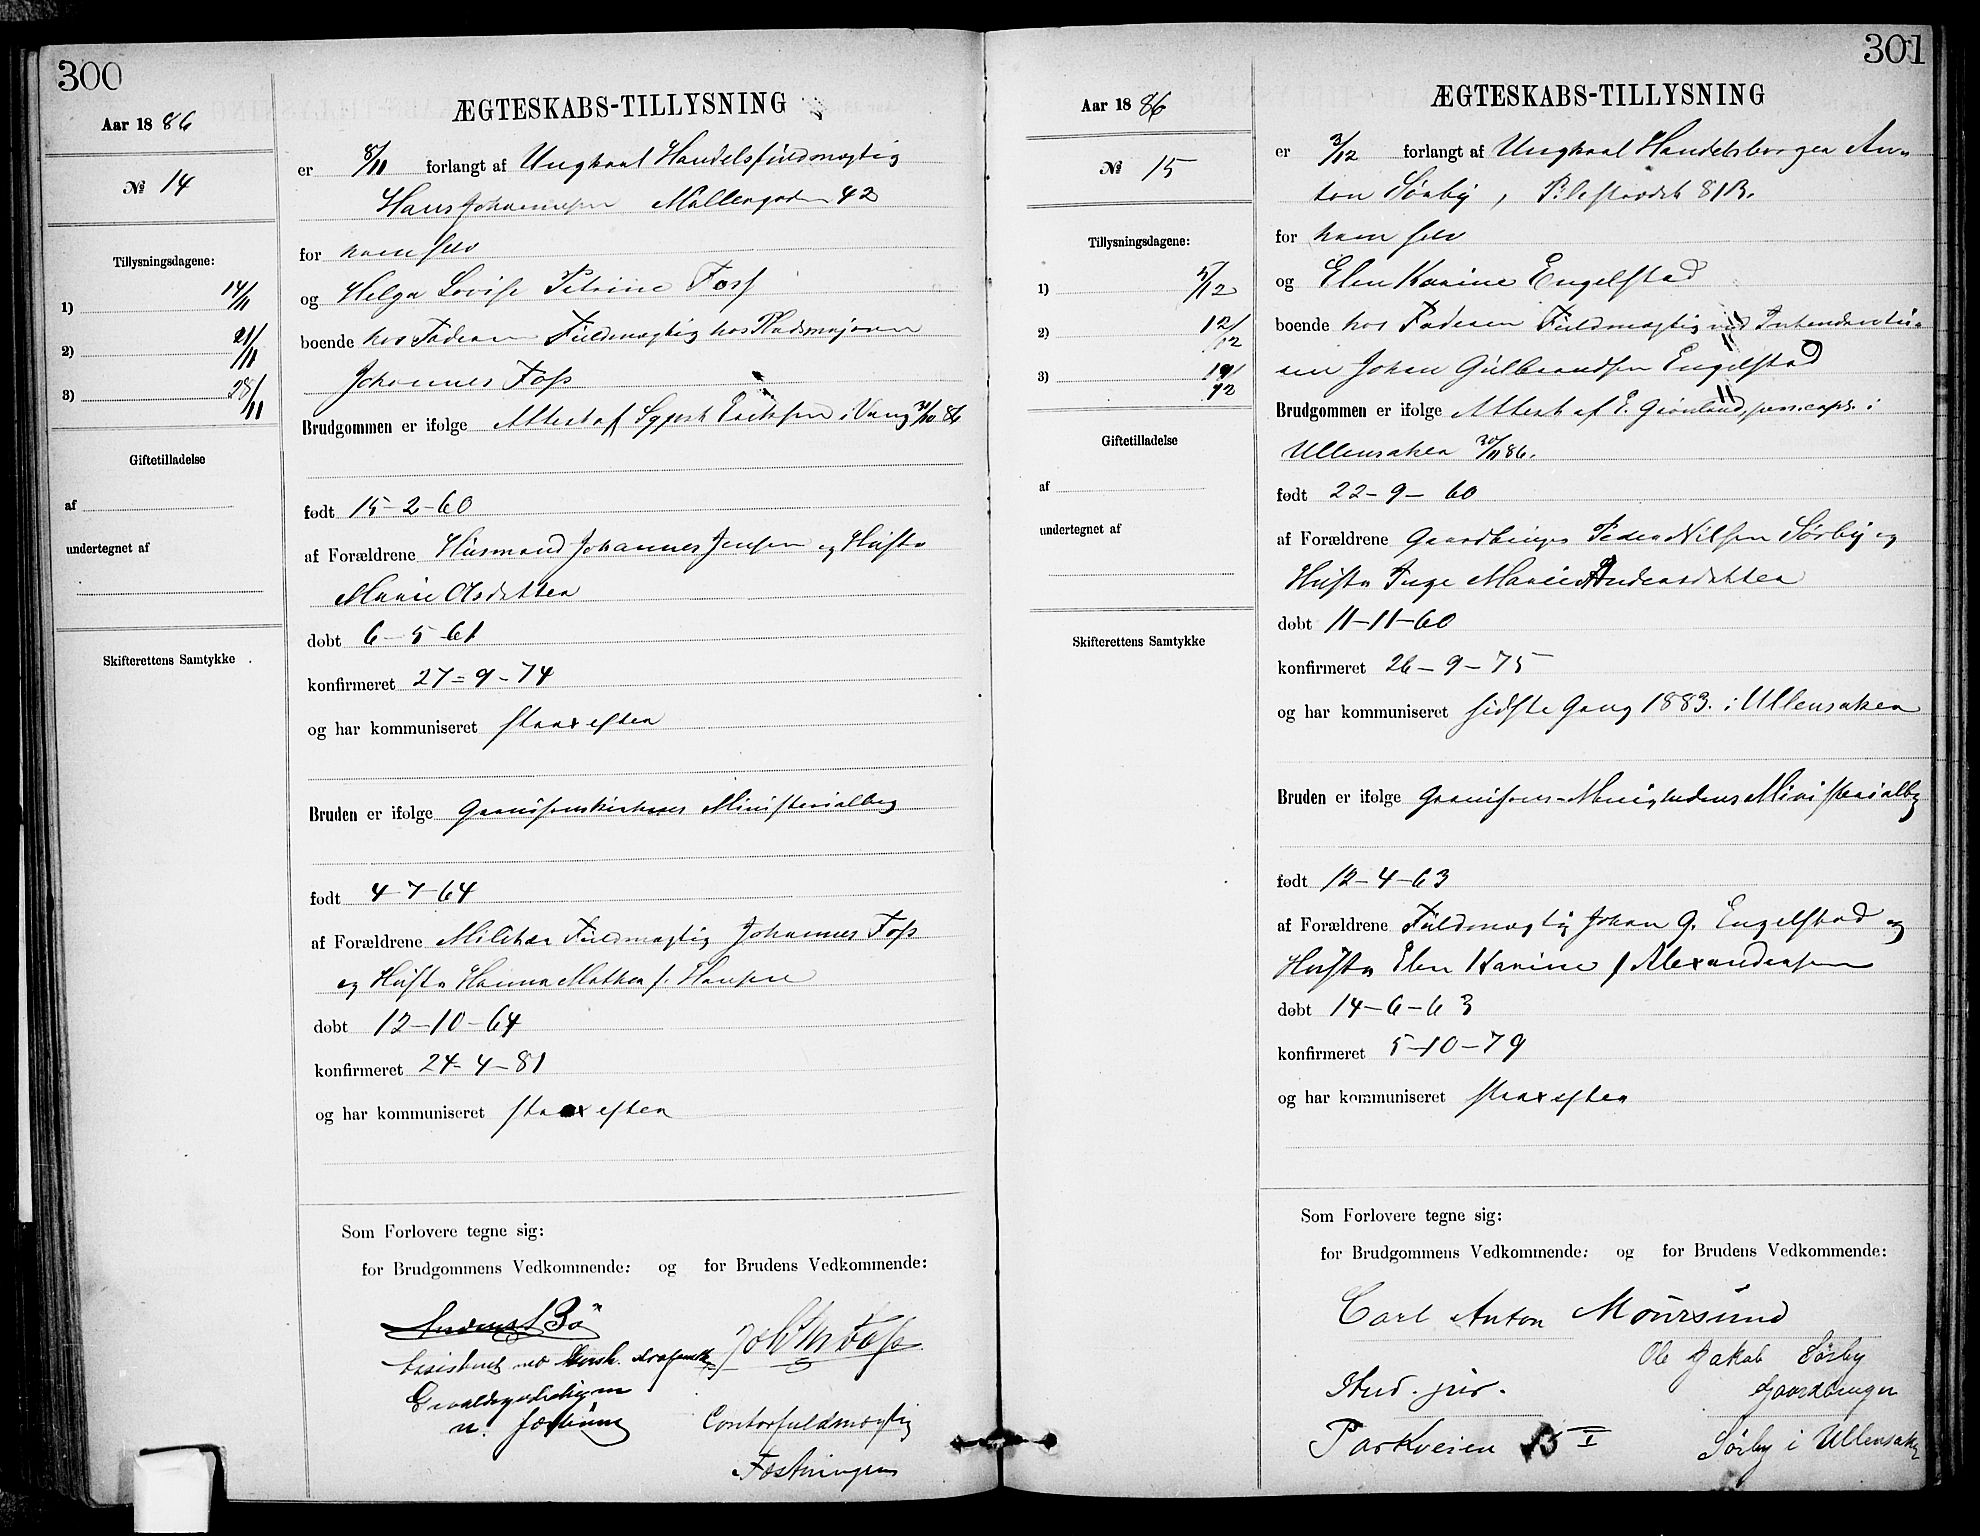 300
Aar 1886
№ 14
Tillysningsdagene:
1) 14/11
2) 21/11
3) 28/11
Giftetilladelse
af
undertegnet af
Skifterettens Samtykke
ÆGTESKABS-TILLYSNING
er 8/11 forlangt af Ungkaal Handelsfuldmægtig
Hans Johannesen Møllergaden 42
for ham selv
og Helga Lovise Petrine Foss
boende hos Faderen Fuldmægtig hos Pladsmajoren
Johannes Foss
Brudgommen er ifølge Attest af Sgpr. Eriksen i Vang 31/10 86
født 15-2-60
af Forældrene Husmand Johannes Jensen og Hustr
Marie Olsdatter
døbt 6-5-61
konfirmeret 27-9-74
og har kommuniseret strax efter
Bruden er ifølge Garnisonskirkens Ministerialbog
født 4-7-64
af Forældrene Militær Fuldmægtig Johannes Foss
og Hustr Hanna Mathea f. Hansen
døbt 12-10-64
konfirmeret 24-4-81
og har kommuniseret strax efter
Som Forlovere tegne sig:
for Brudgommens Vedkommende: og for Brudens Vedkommende:
Bö
Joh Foss
Contorfuldmægtig
Fæstningen
301
Aar 1886
№ 15
Tillysningsdagene:
1) 5/12
2) 12/12
3) 19/12
Giftetilladelse
af
undertegnet af
Skifterettens Samtykke
ÆGTESKABS-TILLYSNING
er 3/12 forlangt af Ungkaal Handelsborger An-
ton Sørby, Pilestrædet 81B.
for ham selv
og Elen Karine Engelstad
boende hos Faderen Fuldmægtig ved Intendantu-
ren Johan Gulbrandsen Engelstad
Brudgommen er ifølge Attest af E. Grønland, pers. cap. i
Ullensaker 30/11 86.
født 22-9-60
af Forældrene Gaardbruger Peder Nilsen Sørby og
Hustr Inge Marie Andersdatter
døbt 11-11-60
konfirmeret 26-9-75
og har kommuniseret sidste Gang 1883. i Ullensaker
Bruden er ifølge Garnisons-Menighedens Ministerialbg
født 12-4-63
af Forældrene Fuldmægtig Johan G. Engelstad og
Hustr Elen Karine f Alexandersen
døbt 14-6-63
konfirmeret 5-10-79
og har kommuniseret strax efter
Som Forlovere tegne sig:
for Brudgommens Vedkommende: og for Brudens Vedkommende:
Carl Anton Moursund
Ole Jakob Sörby
Stud. jur.
Gaardbruger
Parkveien I
Sörby i Ullensaker